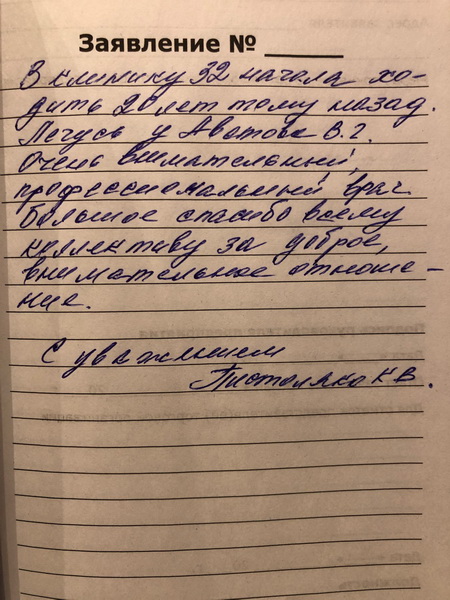 Заявление № ______
В клинику 32 начала хо-
дить 20 лет тому назад.
Лечусь у Аватова В. Г.
Очень внимательный,
профессиональный врач
Большое спасибо всему
коллективу за доброе,
внимательное отноше-
ние.
С уважением
К В.